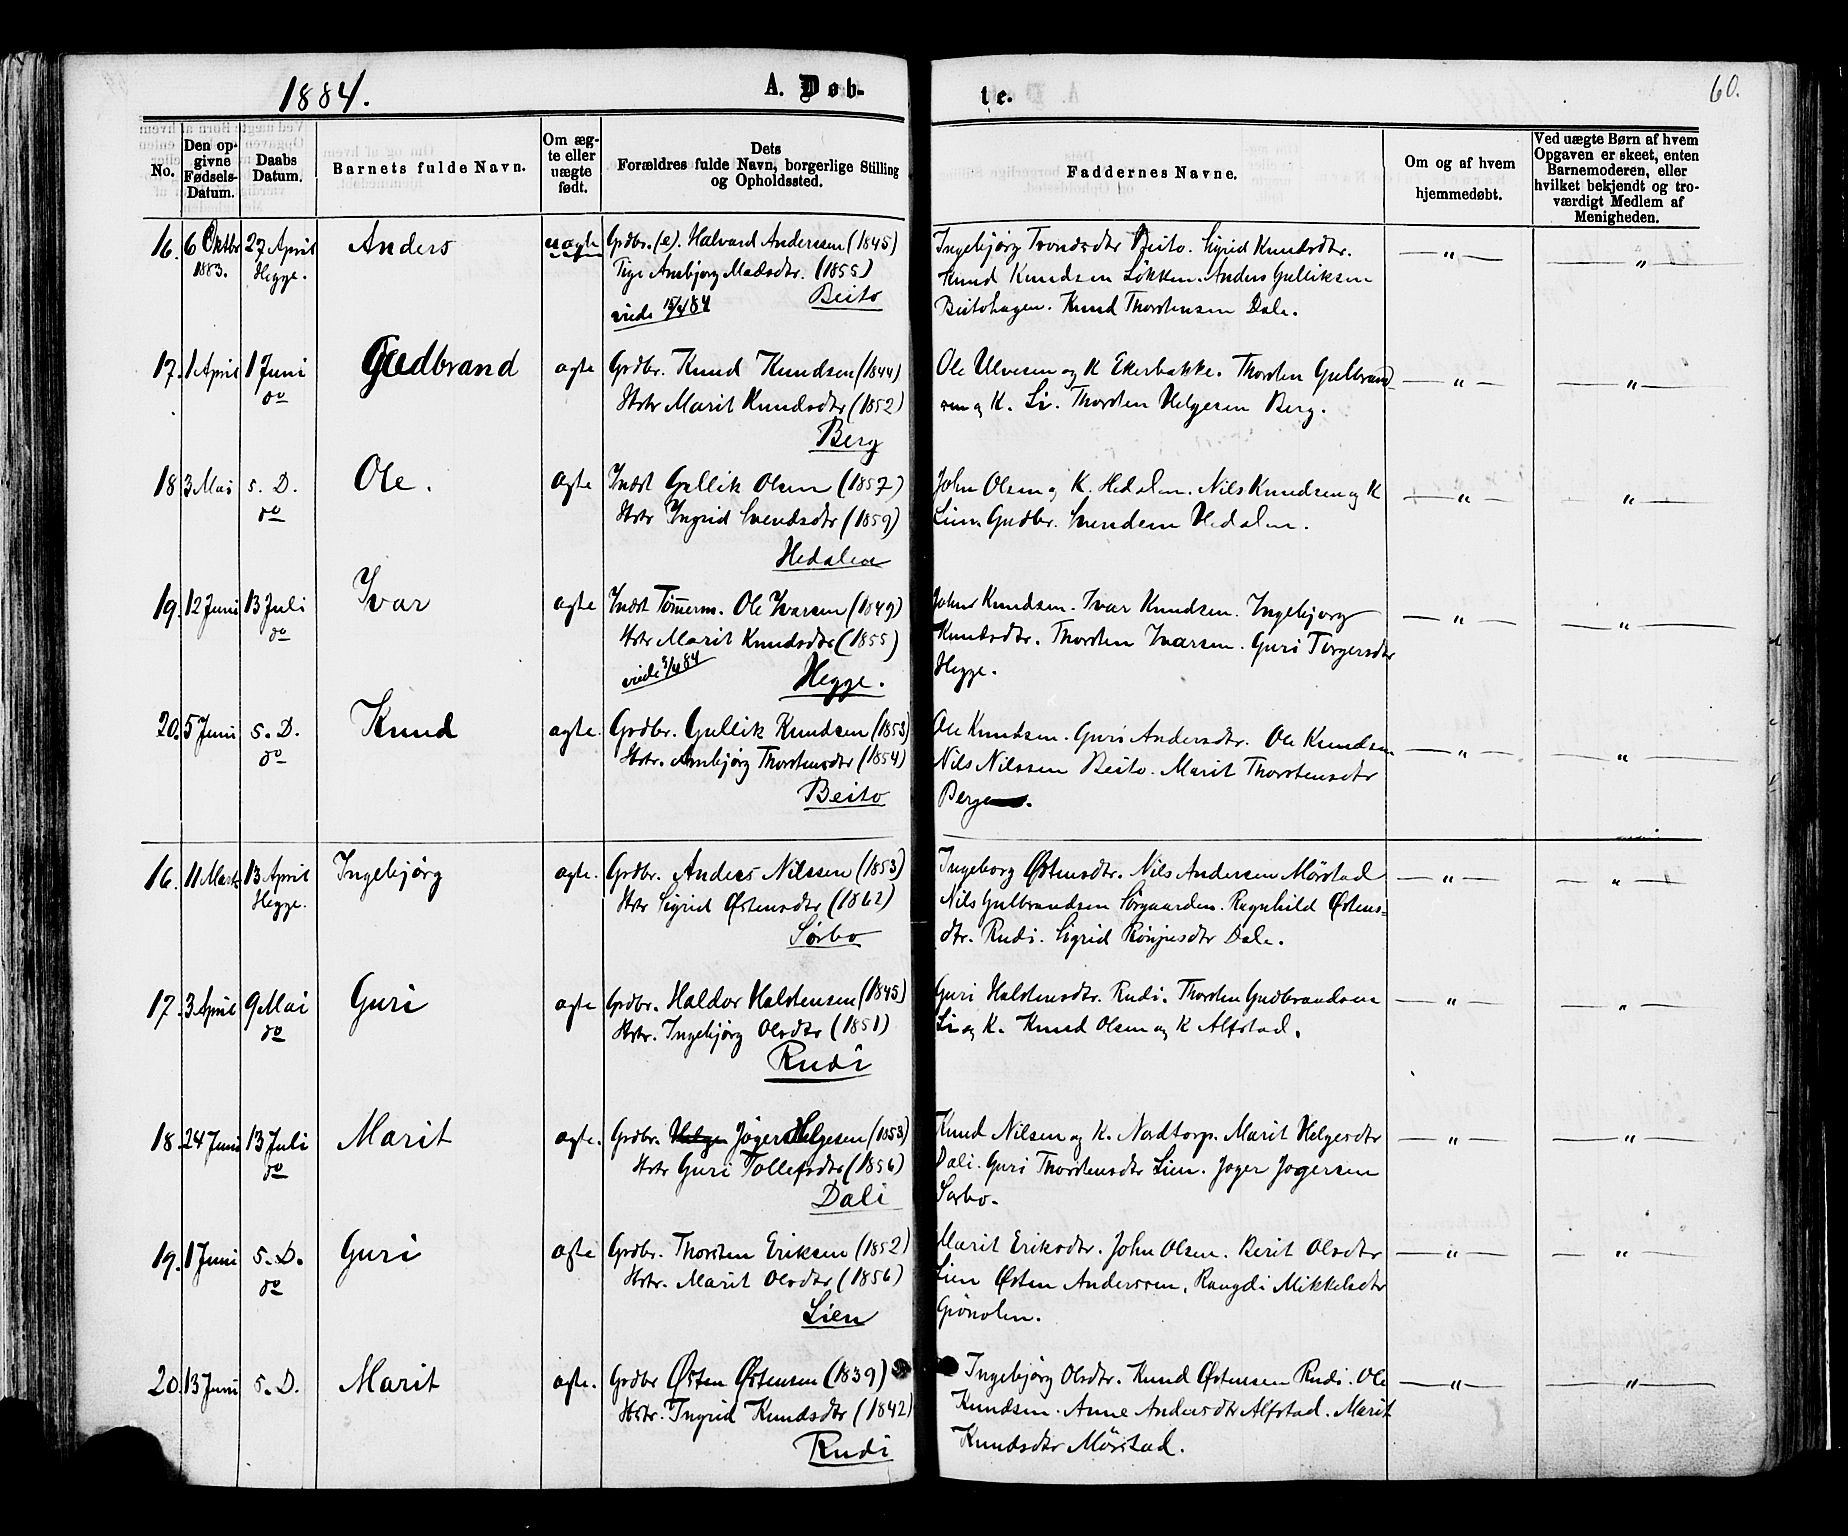 1884.
A. Døb-
te.
60.
No.
Den op-
givne
Fødsels-
Datum.
Daabs
Datum.
Barnets fulde Navn.
Om æg-
te eller
uægte
født.
Dets
Forældres fulde Navn, borgerlige Stilling
og Opholdssted.
Faddernes Navne.
Om og af hvem
hjemmedøbt.
Ved uægte Børn af hvem
Opgaven er skeet, enten
Barnemoderen, eller
hvilket bekjendt og tro-
værdigt Medlem af
Menigheden.
16. 6 Oktbr 27 April Anders uægte Grdbr. (e). Halvard Anderssen (1845)
1883. Hegge. Pige Ambjørg Madsdtr. (1855)
viede 15/4 84 Beito
Ingebjørg Trondsdtr Beito. Sigrid Knudsdtr.
Knud Knudsen Løkken. Anders Gulliksen
Beitohagen. Knud Thorstensen Dale.
— „ — „
17. 1 April 1 Juni Gudbrand ægte Grdbr. Knud Knudsen (1844)
do Hstr Marit Knudsdtr (1852)
Berg
Ole Ulvesen og K Ekerbakke. Thorsten Gulbrand-
sen og K. Li. Thorsten Helgesen Berg.
— „ — „
18 3 Mai s. D. Ole. ægte Indst Gullik Olsen (1857)
do Hstr Ingrid Svendsdtr (1859)
Hedalen
John Olsen og K. Hedalen. Nils Knudsen og K
Lien. Gudbr. Svendsen Hedalen.
— „ — „
19. 12 Juni 13 Juli Ivar ægte Indst Tømerm. Ole Ivarsen (1849)
do Hstr Marit Knudsdtr (1855)
viede 3/4 84 Hegge.
John Knudsen. Ivar Knudsen. Ingebjørg
Knudsdtr. Thorsten Ivarsen. Guri Torgersdtr
Hegge.
— „ — „
20. 5 Juni s. D. Knud ægte. Grdbr. Gullik Knudsen (1853)
do Hstr. Ambjørg Thorstensdtr (1854)
Beito
Ole Knudsen. Guri Andersdtr. Ole Knudsen
Nils Nilssen Beito. Marit Thorstensdtr
Berge.
— „ — „
16. 11 Marts 13 April Ingebjørg ægte. Grdbr. Anders Nilssen (1853)
Hegge. Hstr Sigrid Østensdtr (1862)
Sørbo
Ingeborg Østensdtr. Nils Andersen Mørstad
Nils Gulbrandsen Sørgaarden. Ragnhild Østens-
dtr. Rudi. Sigrid Rønjusdtr Dale.
— „ — „
17. 3 April 9 Mai Guri ægte Grdbr. Haldor Halstensen (1845)
do Hstr. Ingebjørg Olsdtr (1851)
Rudi
Guri Halstensdtr. Rudi. Thorsten Gudbrandsen
Li og K. Knud Olsen og K Alfstad.
— „ — „
18. 24 Juni 13 Juli Marit ægte. Grdbr. Helge Jøger Helgesen (1853)
do Hstr Guri Tollefsdtr (1856)
Dali
Knud Nilsen og K. Nordtorp. Marit Helgesdtr
Dali. Guri Thorstensdtr Lien. Jøger Jøgersen
Sørbo.
— „ — „
19. 1 Juni s. D. Guri ægte Grdbr. Thorsten Eriksen (1852)
do Hstr. Marit Olsdtr (1856)
Lien
Marit Eriksdtr. John Olsen. Berit Olsdtr
Lien Østen Anderssen, Rangdi Mikkelsdtr
Grönolen.
— „ — „
20. 13 Juni s. D. Marit ægte. Grdbr Østen Østensen (1839)
Hstr. Ingrid Knudsdtr (1842)
Rudi
Ingebjørg Olsdtr. Knud Østensen Rudi. Ole
Knudsen. Anne Andersdtr Alfstad. Marit
Knudsdtr Mørstad.
— „ — „